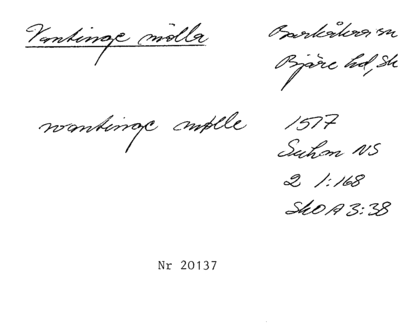 Vantinge mölla
Barkåkra sn
Bjäre hd, Sk
wantinge mølle
1517
Suhm NS
2 1:168
SkO A 3:38
Nr 20137